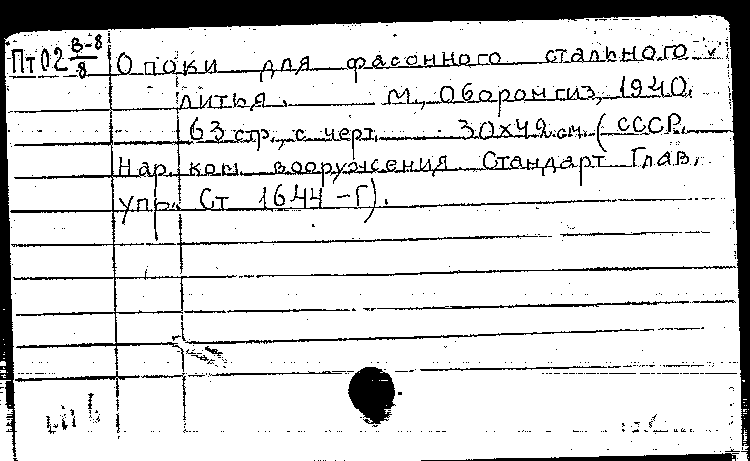 Пт02 В-8/8 Опоки для фасонного стального
литья. М., Оборонгиз, 1940.
63 стр., с черт. 30х42 см. (СССР.
Нар. ком. вооружения Стандарт Глав.
упр. Ст 1644-Г).